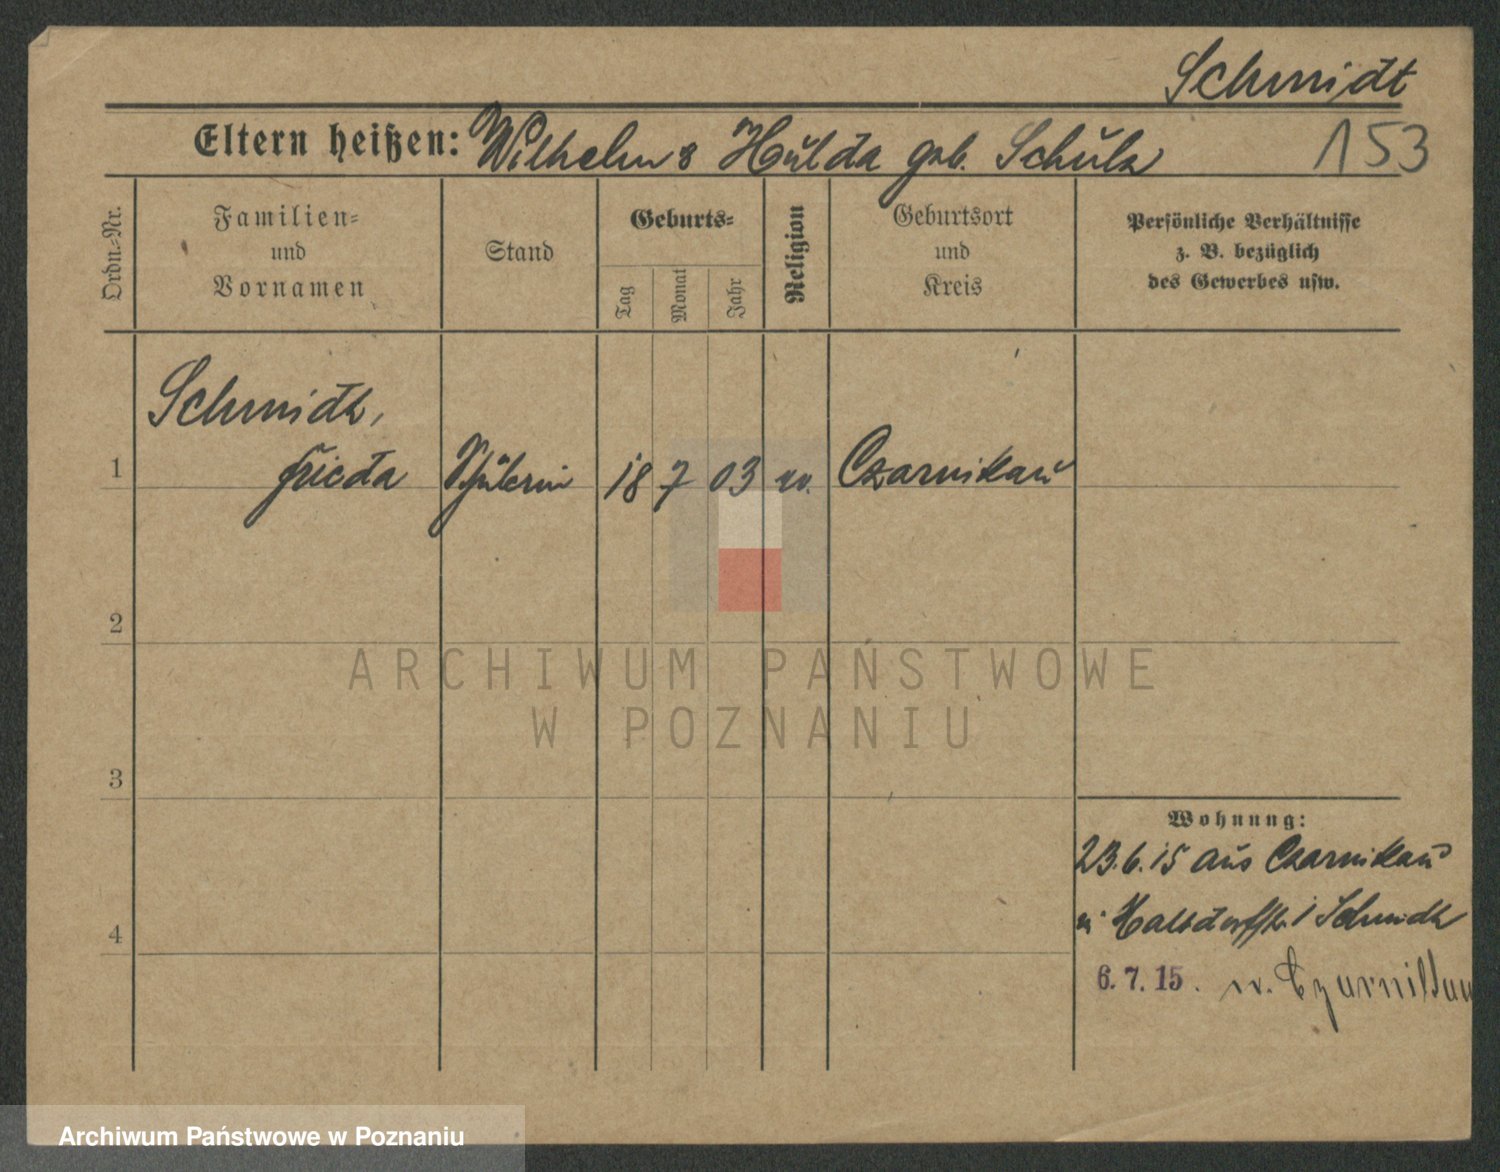 Schmidt
Eltern heißen: Wilhelm & Hulda geb. Schulz
153
Ordn.-Nr.
Familien-
und
Vornamen
Stand
Geburts-
Tag
Monat
Jahr
Religion
Geburtsort
und
Kreis
Persönliche Verhältnisse
z. B. bezüglich
des Gewerbes usw.
Schmidt,
1 Frieda Schülerin 18 7 03 ev. Czarnikau
2
ARCHIWUM PAŃSTWOWE
W POZNANIU
3
Wohnung:
23.6.15 aus Czarnikau
4
Schmidt
6.7.15. n. Czarnikau
Archiwum Państwowe w Poznaniu